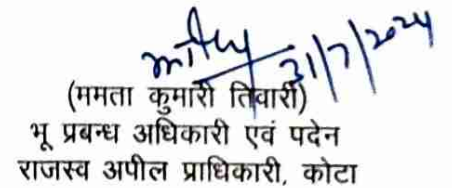 31/7/2024
(ममता कुमारी तिवारी)
भू प्रबन्ध अधिकारी एवं पदेन
राजस्व अपील प्राधिकारी, कोटा